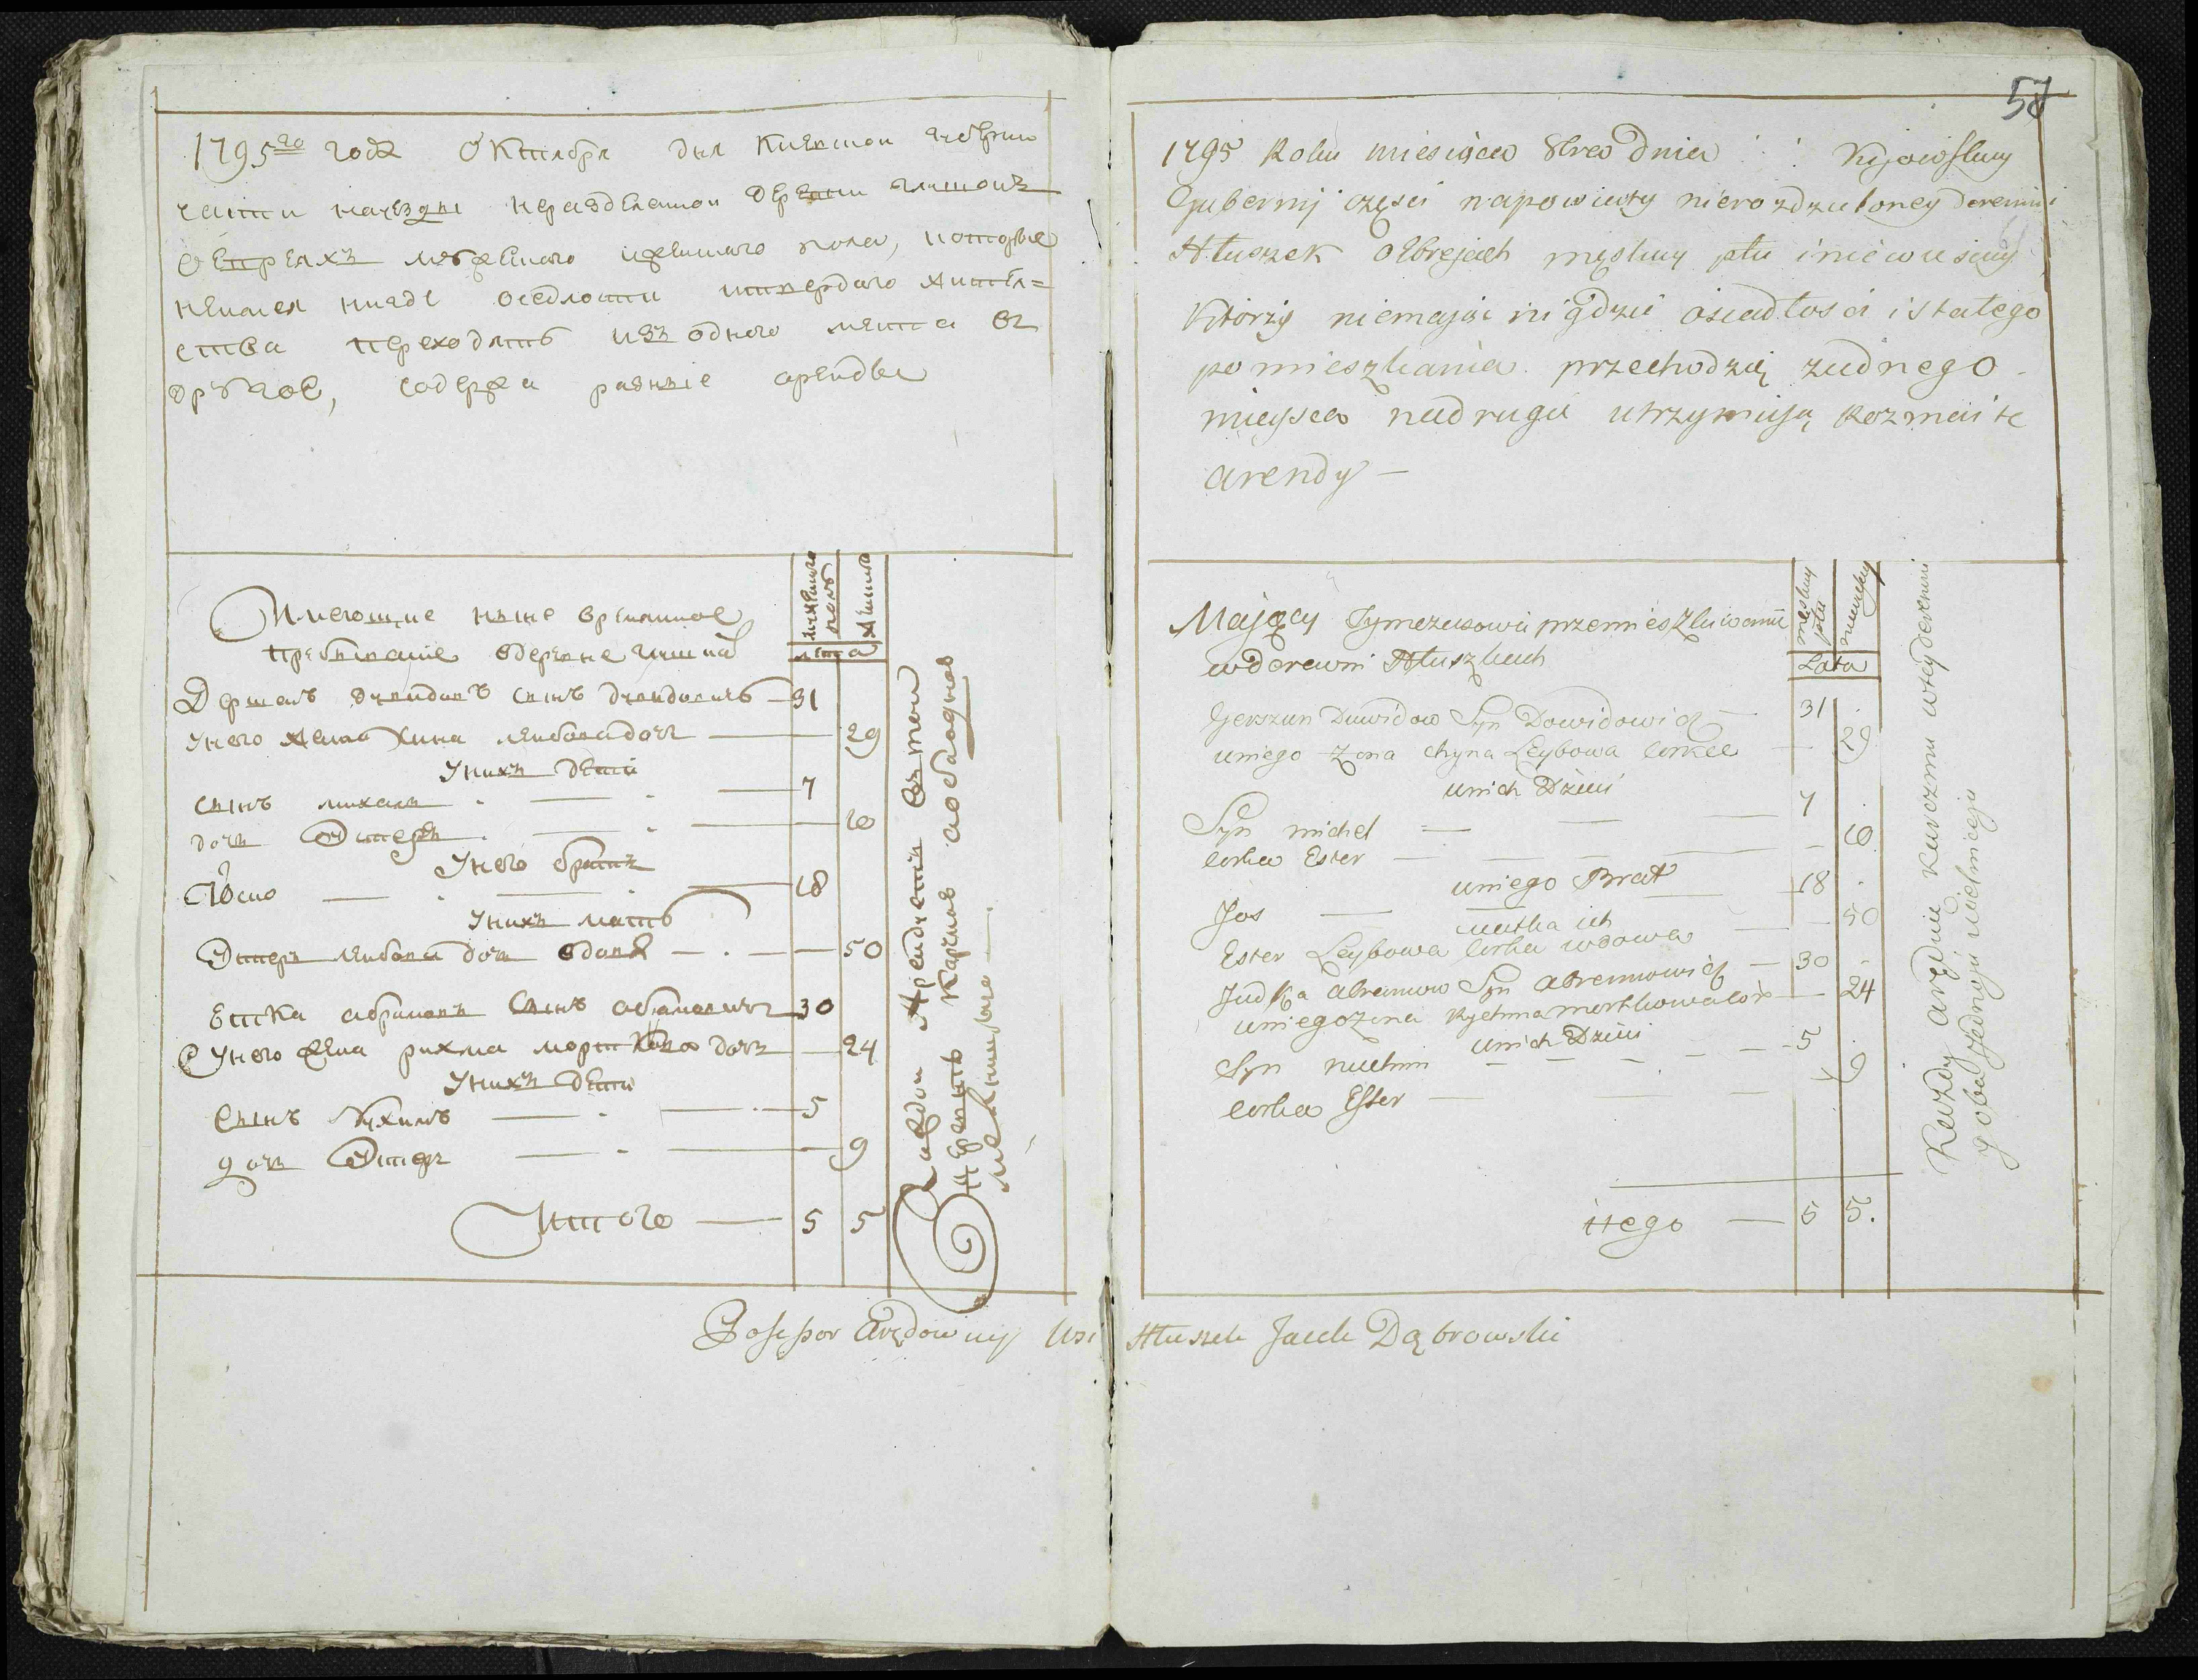 1795го года Октября дня Киевской губернии
части науезды неразделенной деревни глушокъ
О Евреяхъ мужеского иженского пола, которые
неимея нигде оседлости итвердого жител=
ства переходятъ изъ одного места въ
другое, содержа разные аренды
Имеющие ныне временное
пребывание вдеревне глушкахъ
мужеского полу
женска
лета
Гершонъ Давидовъ сынъ Давидовичъ — 31
Унего жена Хина лейбова дочь — 29
Унихъ дети
сынъ михель — 7
дочь Эстеръ — 10
Унего братъ
Иосио — 18
Унихъ мать
Эстеръ лейбова дочь вдова — 50
Етска абрамовъ сынъ абрамовичъ 30
Унего жена рихма мортхова дочь — 24
Унихъ дети
сынъ Нухимъ — 5
дочь Эстеръ — 9
Итого — 5 5
Каждой Арендуетъ въ той
деревне Карчмы
57
1795 Roku miesiąca 8bra dnia Kijowskuy
Gubernij części napowiaty nierozdzieloney derewni
Hłuszek Obrejach męskuy płu i niewiesciuy
Którzy niemając nigdzie osiadłości i stałego
pomieszkania przechodzą ziednego
mieysca nadrugie utrzymują Rozmaite
arendy —
Mający Tymczasowie przemieszkiwanie
wderewni Hłuszkach
męskuy płu
niewieskuy
Lata
Gerszun Dawidow Syn Dowidowicz — 31
uniego Zona Chyna Leybowa Corka — 29
unich Dzieci
Syn michel — 7
Corka Ester — 10
uniego Brat
Jos — 18
matka ich
Ester Leybowa Corka wdowa — 50
Judka Abramow Syn Abramowicz — 30
uniego Zona Rychma mortkowa Cor — 24
unich Dzieci
Syn nuchim — 5
Corka Ester — 9
itego — 5 5.
Kazdy aręduie Karczmu wtey derewni
Possessor Arędowny Wsi Hłuszek Jacek Dąbrowski